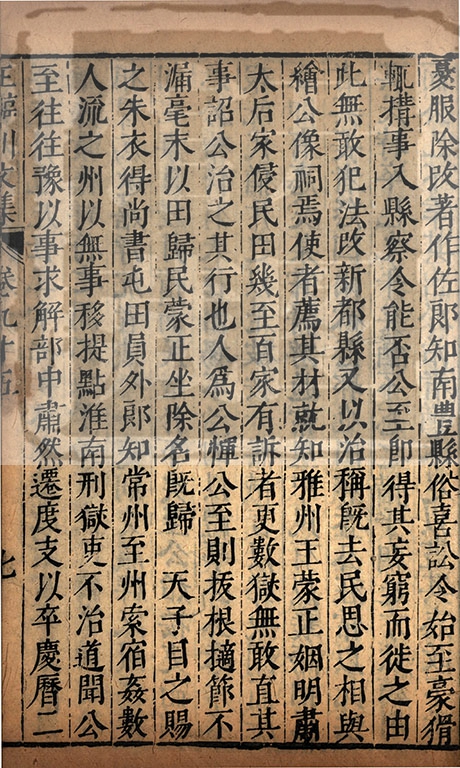 憂服除改著作佐郎知南豐縣俗喜訟令始至豪猾
輒搆事入縣察令能否公至即得其妄窮而徙之由
此無敢犯法改新都縣又以治稱既去民思之相與
繪公像祠焉使者薦其材就知雅州王蒙正姻明肅
太后家侵民田幾至百家有訴者更數獄無敢直其
事詔公治之其行也人爲公憚公至則拔根擿節不
漏毫末以田歸民蒙正坐除名既歸　天子目之賜
之朱衣得尚書屯田員外郎知常州至州索宿姦數
人流之州以無事移提點淮南刑獄吏不治道聞公
至往往豫以事求解部中肅然遷度支以卒慶曆二
王臨川文集　卷九十五　七